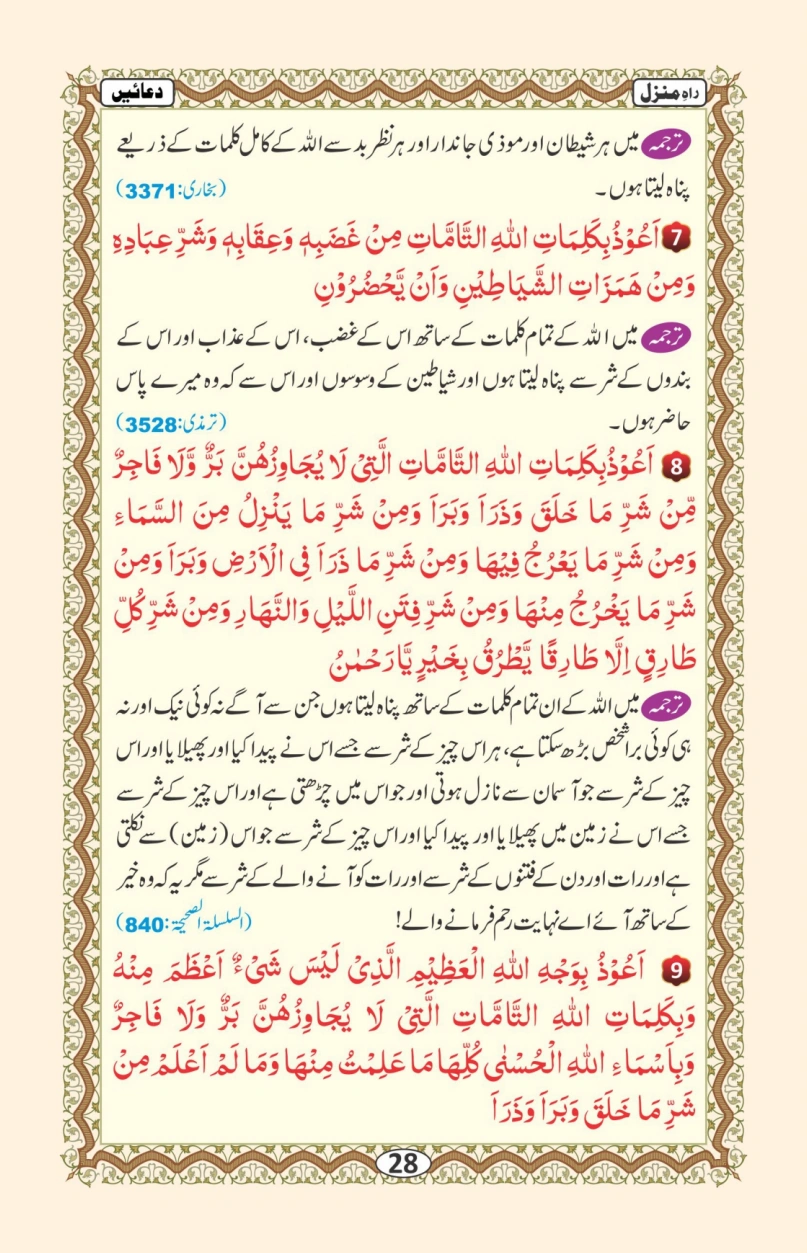 راہِ منزل
دعائیں
ترجمہ میں ہر شیطان اور موذی جاندار اور ہر نظر بد سے اللہ کے کامل کلمات کے ذریعے
پناہ لیتا ہوں۔ (بخاری: 3371)
7 اَعُوْذُ بِكَلِمَاتِ اللهِ التَّامَّاتِ مِنْ غَضَبِهٖ وَعِقَابِهٖ وَشَرِّ عِبَادِهِ
وَمِنْ هَمَزَاتِ الشَّيَاطِيْنِ وَاَنْ يَّحْضُرُوْنِ
ترجمہ میں اللہ کے تمام کلمات کے ساتھ اس کے غضب، اس کے عذاب اور اس کے
بندوں کے شر سے پناہ لیتا ہوں اور شیاطین کے وسوسوں اور اس سے کہ وہ میرے پاس
حاضر ہوں۔ (ترمذی: 3528)
8 اَعُوْذُ بِكَلِمَاتِ اللهِ التَّامَّاتِ الَّتِيْ لَا يُجَاوِزُهُنَّ بَرٌّ وَّلَا فَاجِرٌ
مِّنْ شَرِّ مَا خَلَقَ وَذَرَاَ وَبَرَاَ وَمِنْ شَرِّ مَا يَنْزِلُ مِنَ السَّمَاءِ
وَمِنْ شَرِّ مَا يَعْرُجُ فِيْهَا وَمِنْ شَرِّ مَا ذَرَاَ فِي الْاَرْضِ وَبَرَاَ وَمِنْ
شَرِّ مَا يَخْرُجُ مِنْهَا وَمِنْ شَرِّ فِتَنِ اللَّيْلِ وَالنَّهَارِ وَمِنْ شَرِّ كُلِّ
طَارِقٍ اِلَّا طَارِقًا يَّطْرُقُ بِخَيْرٍ يَّارَحْمٰنُ
ترجمہ میں اللہ کے ان تمام کلمات کے ساتھ پناہ لیتا ہوں جن سے آگے نہ کوئی نیک اور نہ
ہی کوئی برا شخص بڑھ سکتا ہے، ہر اس چیز کے شر سے جسے اس نے پیدا کیا اور پھیلایا اور اس
چیز کے شر سے جو آسمان سے نازل ہوتی اور جو اس میں چڑھتی ہے اور اس چیز کے شر سے
جسے اس نے زمین میں پھیلایا اور پیدا کیا اور اس چیز کے شر سے جو اس (زمین) سے نکلتی
ہے اور رات اور دن کے فتنوں کے شر سے اور رات کو آنے والے کے شر سے مگر یہ کہ وہ خیر
کے ساتھ آئے اے نہایت رحم فرمانے والے! (السلسلة الصحیحة: 840)
9 اَعُوْذُ بِوَجْهِ اللهِ الْعَظِيْمِ الَّذِيْ لَيْسَ شَيْءٌ اَعْظَمَ مِنْهُ
وَبِكَلِمَاتِ اللهِ التَّامَّاتِ الَّتِيْ لَا يُجَاوِزُهُنَّ بَرٌّ وَلَا فَاجِرٌ
وَبِاَسْمَاءِ اللهِ الْحُسْنٰى كُلِّهَا مَا عَلِمْتُ مِنْهَا وَمَا لَمْ اَعْلَمْ مِنْ
شَرِّ مَا خَلَقَ وَبَرَاَ وَذَرَاَ
28